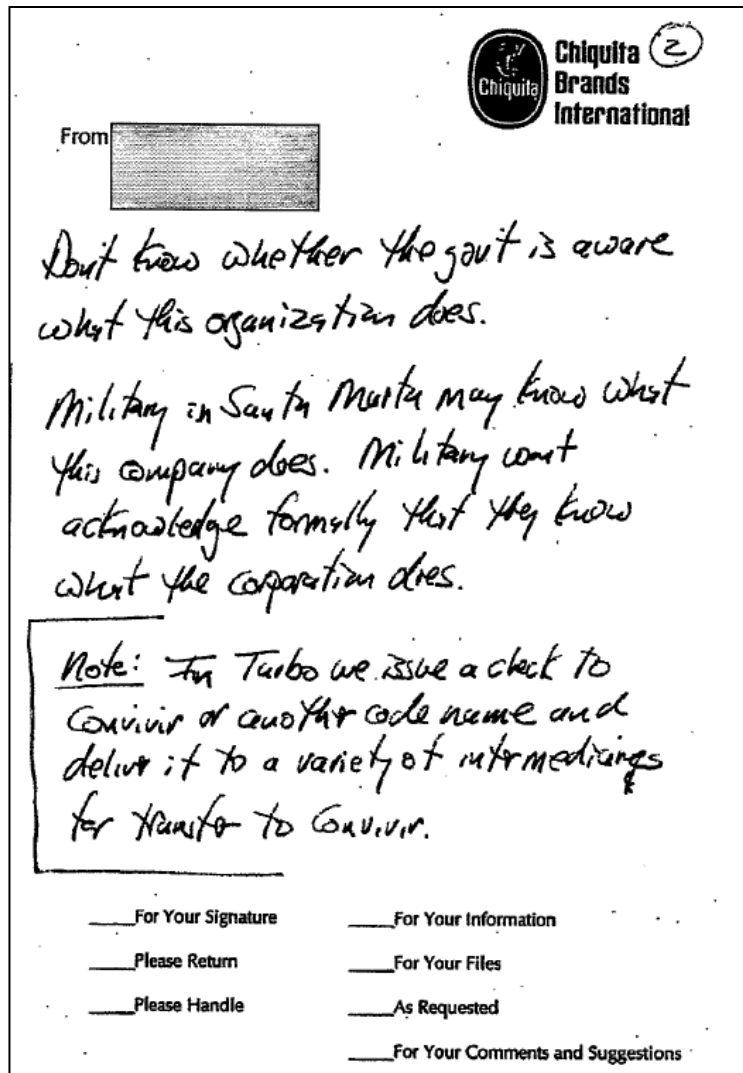 Chiquita
Chiquita 2
Brands
International
From
Don't know whether the gov't is aware
what this organization does.
Military in Santa Marta may know what
this company does. Military won't
acknowledge formally that they know
what the corporation does.
Note: In Turbo we issue a check to
Convivir or another code name and
deliver it to a variety of intermediaries
for transfer to Convivir.
For Your Signature For Your Information
Please Return For Your Files
Please Handle As Requested
For Your Comments and Suggestions